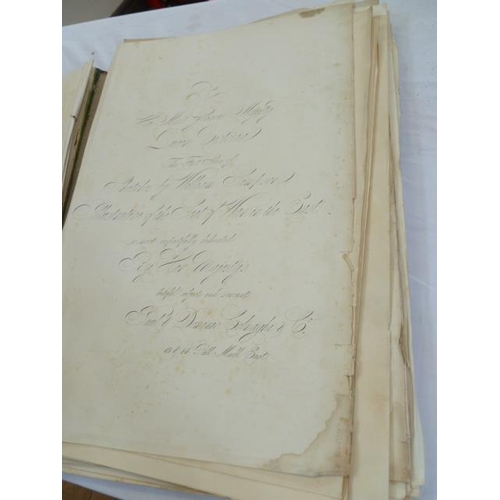 To
Her Most Gracious Majesty
Queen Victoria
The First Series of
Sketches by William Simpson
Illustrative of the Seat of War in the East
is most respectfully dedicated
By Her Majesty's
dutiful subjects and servants
Paul & Dominic Colnaghi & Co.
13 & 14 Pall Mall East